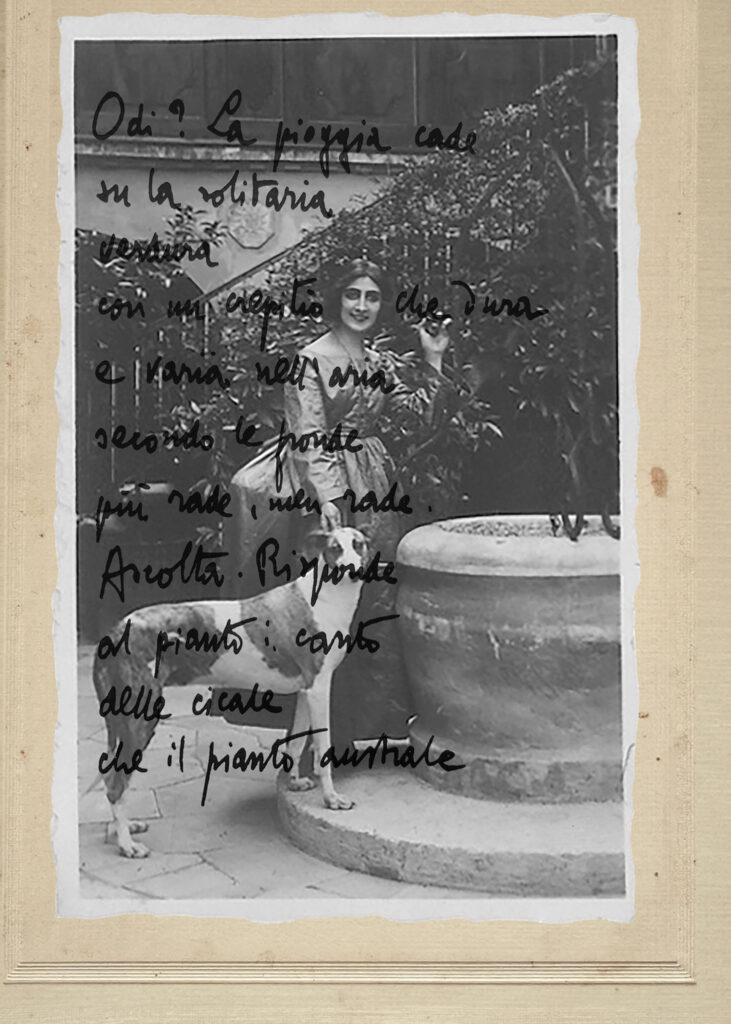 Odi? La pioggia cade
su la solitaria
verdura
con un crepitio che dura
e varia nell'aria
secondo le fronde
più rade, men rade.
Ascolta. Risponde
al pianto il canto
delle cicale
che il pianto australe